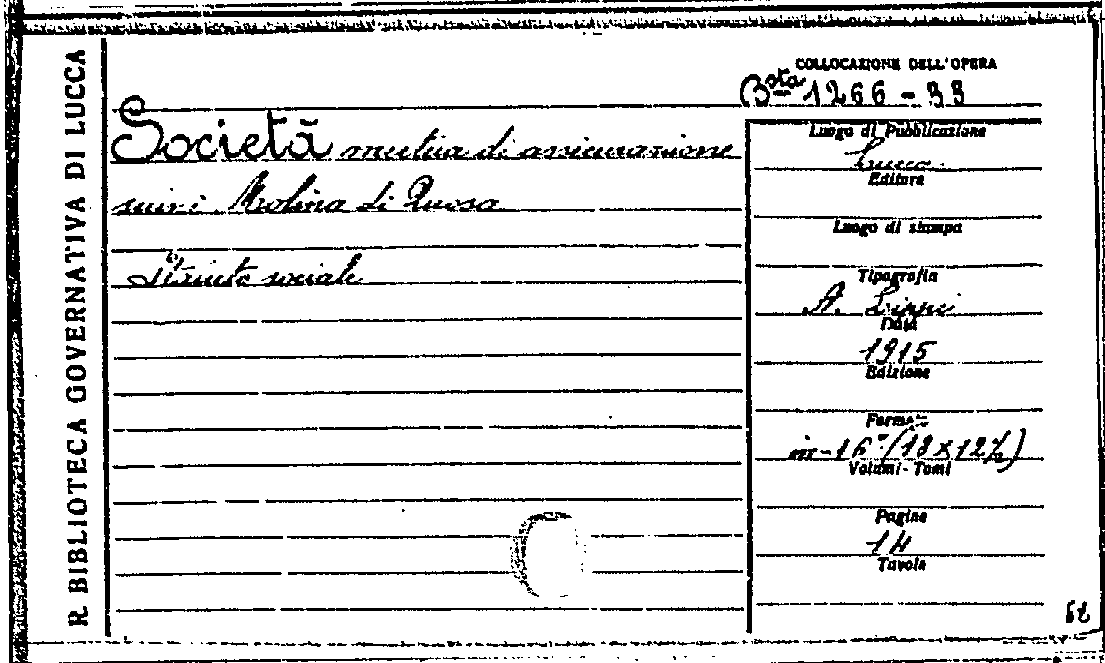 R. BIBLIOTECA GOVERNATIVA DI LUCCA
COLLOCAZIONE DELL'OPERA
B.ta 1266 - 33
Società mutua di assicurazione
suini Molina di Quosa
Statuto sociale
Luogo di Pubblicazione
Lucca
Editore
Luogo di stampa
Tipografia
A. Lippi
Data
1915
Edizione
Formato
in-16° (18 x 12½)
Volumi - Tomi
Pagine
14
Tavole